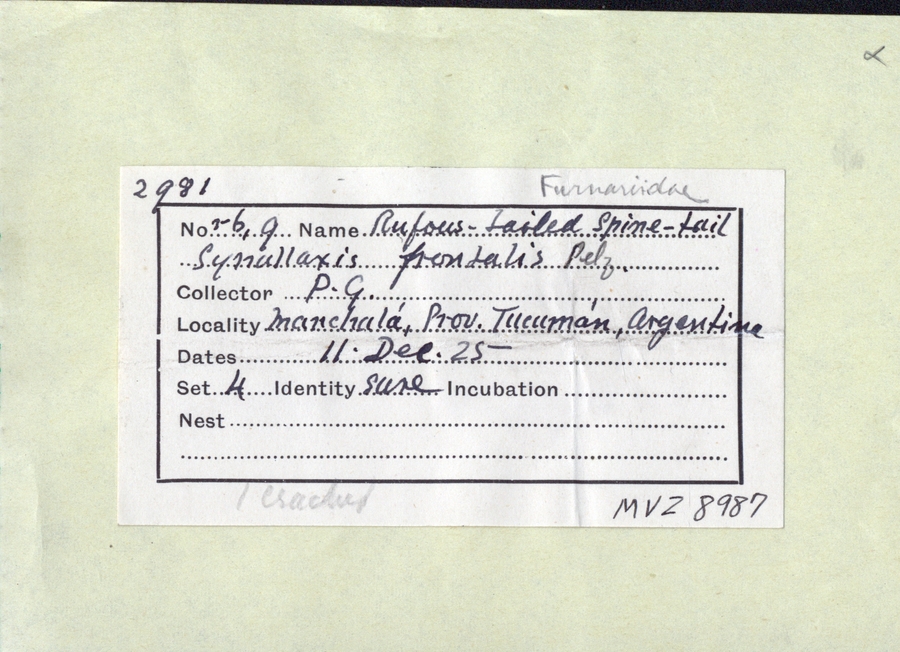 2981 Furnariidae
No. r-6, 9. Name Rufous-tailed Spine-tail
Synallaxis frontalis Pelz.
Collector P.G.
Locality Manchalá, Prov. Tucumán, Argentina
Dates 11. Dec. 25
Set 4 Identity sure Incubation
Nest
1 cracked
MVZ 8987